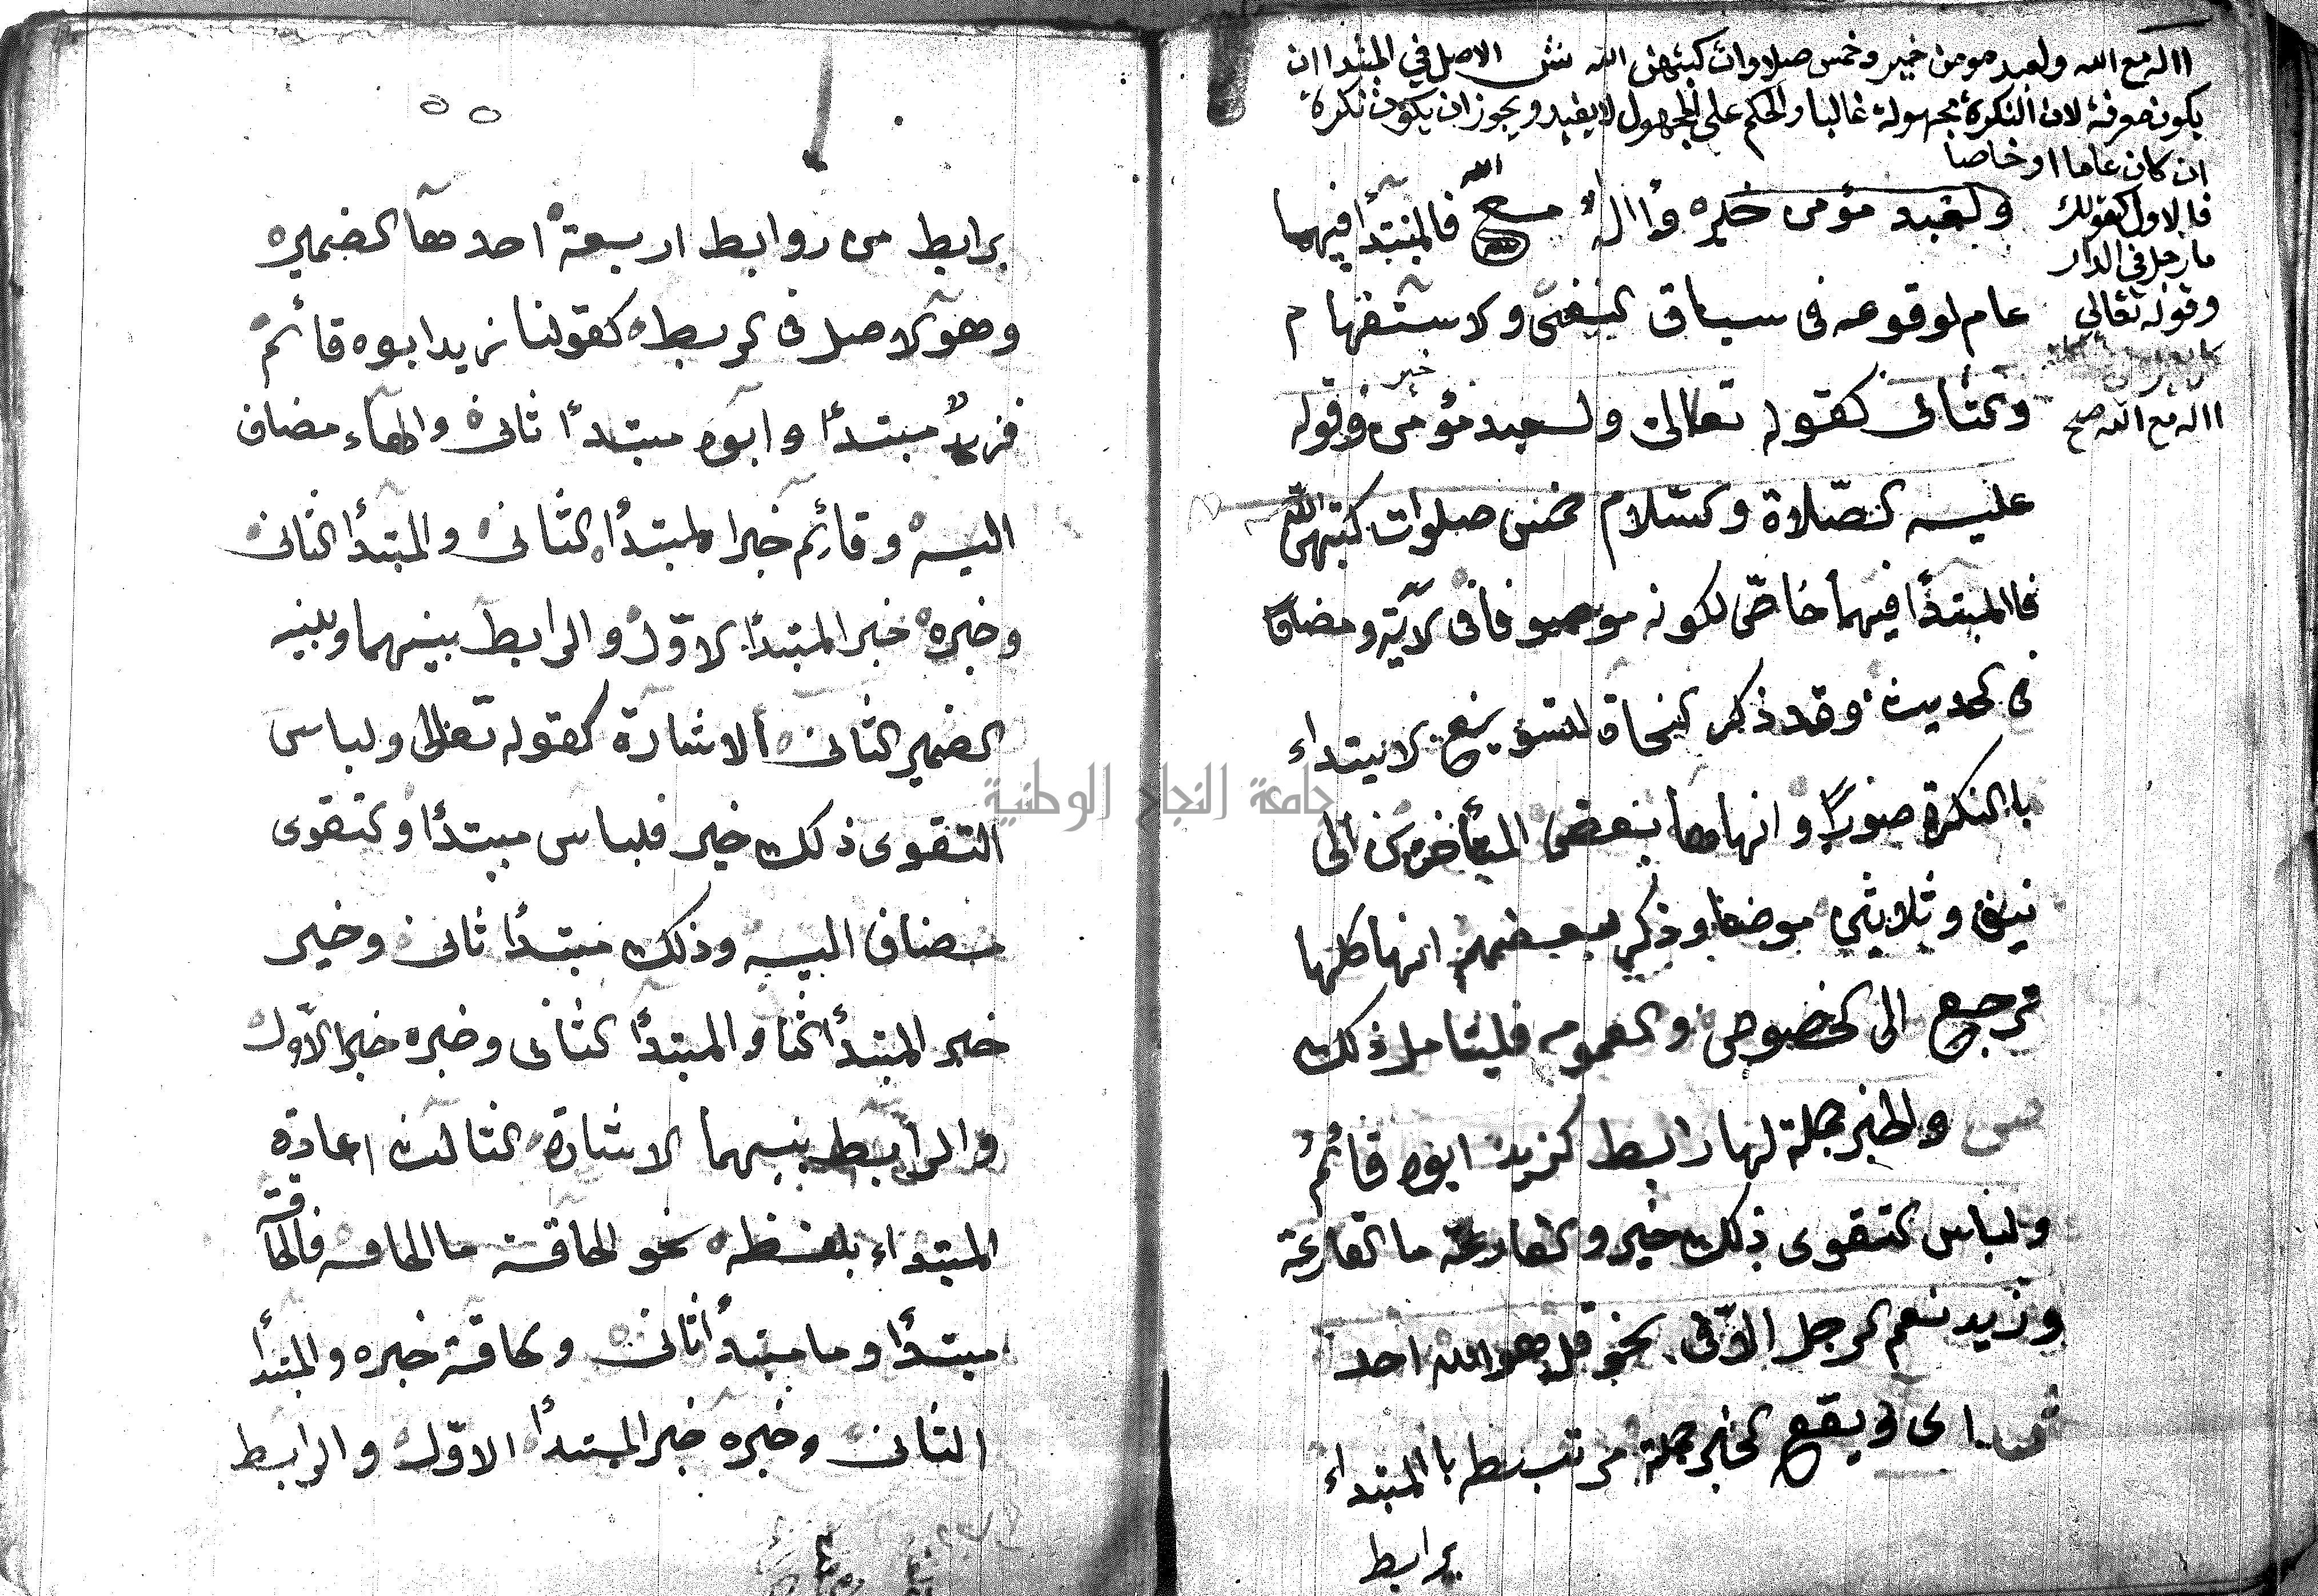 االه مع الله ولعبد مومن خير وخمس صلاوات كتبهن الله ش الاصل في المبتدا ان
يكون معرفة لان النكرة مجهولة غالبا والحكم على المجهول لا يفيد ويجوز ان يكون نكرة
ان كان عاما او خاصا
فالاول كقولك
ما رجل في الدار
وقوله تعالى
االه مع الله صح
ولعبد مؤمن خير وأاله مع الله فالمبتدأ فيهما
عام لوقوعه فى سياق النفى والاستفهام
والثانى كقوله تعالى ولعبد مؤمن خير وقوله
عليه الصّلاة والسّلام خمس صلوات كتبهن الله
فاالمبتدأ فيهما خاصّ لكونه موصوفا فى الآية ومضافا
فى الحديث وقد ذكر النحاة لتسويغ الابتداء
باالنكرة صورًا وانهاها بعض المتأخرين الى
نيف وثلاثين موضعا وذكر بعضهم انها كلها
ترجع الى الخصوص والعموم فليتامل ذلك
ص والخبر جملة لها رابط كزيد ابوه قائمٌ
ولباس التقوى ذلك خير والقارعة ما القارعة
وزيد نعم الرجل الاّ فى نحو قل هو الله احد
ش اى ويقع الخبر جملة مرتبطه باالمبتداء
برابط
٥٥
برابط من روابط اربعة احدها الضمير
وهو الاصل فى الربط كقولنا زيد ابوه قائمٌ
فزيدٌ مبتدأ وابوه مبتدأ ثانى والهاء مضاف
اليه وقائم خبر المبتدأ الثانى والمبتدأ الثانى
وخبره خبر المبتدأ الاوّل والرابط بينهما وبينه
الضمير الثانى الاشارة كقوله تعالى ولباس
التقوى ذلك خير فلباس مبتدأ والتقوى
مضاف اليه وذلك مبتدأ ثانى وخير
خبر المبتدأ الثا والمبتدأ الثانى وخبره خبر الاّول
والرابط بينهما الاشارة الثالث اعادة
المبتداء بلفظه نحو الحاقة ما الحاقه فالحاقة
مبتدأ وما مبتدأ ثانى والحاقة خبره والمبتدأ
الثانى وخبره خبر المبتدأ الاوّل والرابط
جامعة النجاح الوطنية